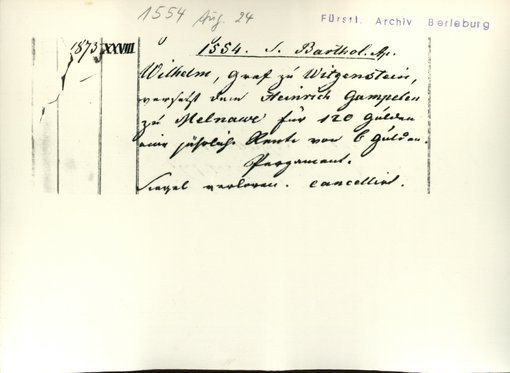 1554 Aug. 24
Fürstl. Archiv Berleburg
1873 XXVIII. 1554. S. Barthol. Ap.
Wilhelm, Graf zu Witgenstein,
versetzt dem Heinrich Gampelen
zu Melnawe für 120 Gulden
eine jährliche Rente von 6 Gulden.
Pergament.
Siegel verloren. cancellirt.